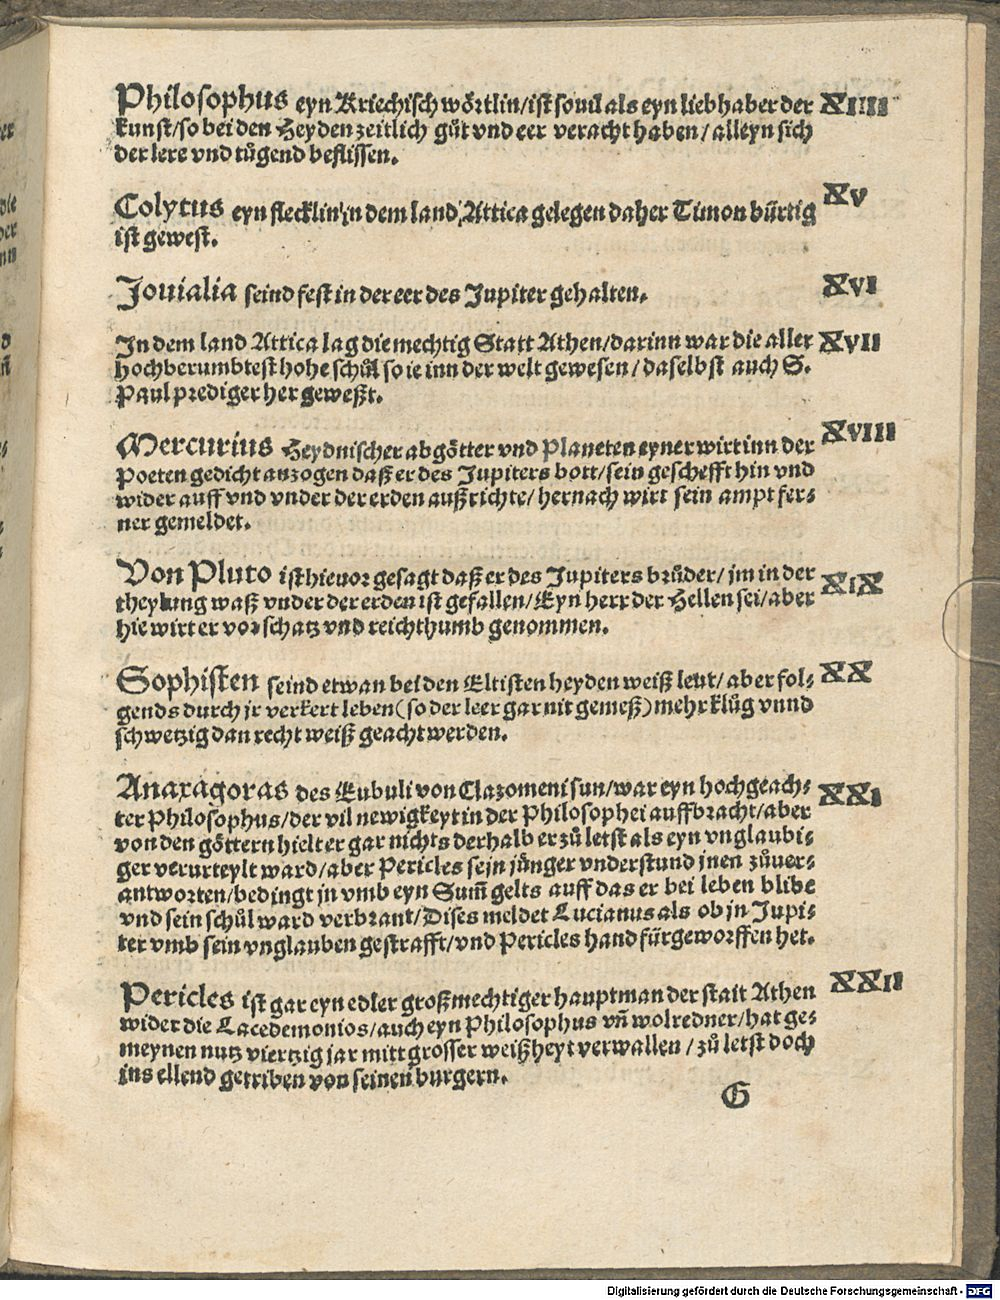 Philosophus eyn Kriechisch wörtlin/ist souil als eyn liebhaber der XIIII
kunst/so bei den Heyden zeitlich gůt vnd eer veracht haben/alleyn sich
der lere vnd tůgend beflissen.
Colytus eyn flecklin in dem land Attica gelegen daher Timon bürtig XV
ist gewest.
Jouialia seind fest in der eer des Jupiter gehalten. XVI
In dem land Attica lag die mechtig Statt Athen/darinn war die aller XVII
hochberumbtest hohe schůl so ie inn der welt gewesen/daselbst auch S.
Paul prediger her geweßt.
Mercurius Heydnischer abgötter vnd Planeten eyner wirt inn der XVIII
Poeten gedicht anzogen daß er des Jupiters bott/sein geschefft hin vnd
wider auff vnd vnder der erden außrichte/hernach wirt sein ampt fer⸗
ner gemeldet.
Von Pluto ist hieuor gesagt daß er des Jupiters brůder/jm in der XIX
theylung waß vnder der erden ist gefallen/Eyn herr der Hellen sei/aber
hie wirt er vor schatz vnd reichthumb genommen.
Sophisten seind etwan bei den Eltisten heyden weiß leut/aber fol⸗ XX
gends durch jr verkert leben(so der leer gar nit gemeß)mehr klůg vnnd
schwetzig dan recht weiß geacht werden.
Anaxagoras des Eubuli von Clazomeni sun/war eyn hochgeach⸗ XXI
ter Philosophus/der vil newigkeyt in der Philosophei auffbracht/aber
von den göttern hielt er gar nichts derhalb er zů letst als eyn vnglaubi⸗
ger verurteylt ward/aber Pericles sein jünger vnderstund jnen zůuer⸗
antworten/bedingt jn vmb eyn Sum̃ gelts auff das er bei leben blibe
vnd sein schůl ward verbrant/Dises meldet Lucianus als ob jn Jupi⸗
ter vmb sein vnglauben gestrafft/vnd Pericles hand fürgeworffen het.
Pericles ist gar eyn edler großmechtiger hauptman der statt Athen XXII
wider die Lacedemonios/auch eyn Philosophus vñ wolredner/hat ge⸗
meynen nutz viertzig jar mitt grosser weißheyt verwallen/zů letst doch
ins ellend getriben von seinen burgern.
G
Digitalisierung gefördert durch die Deutsche Forschungsgemeinschaft - DFG